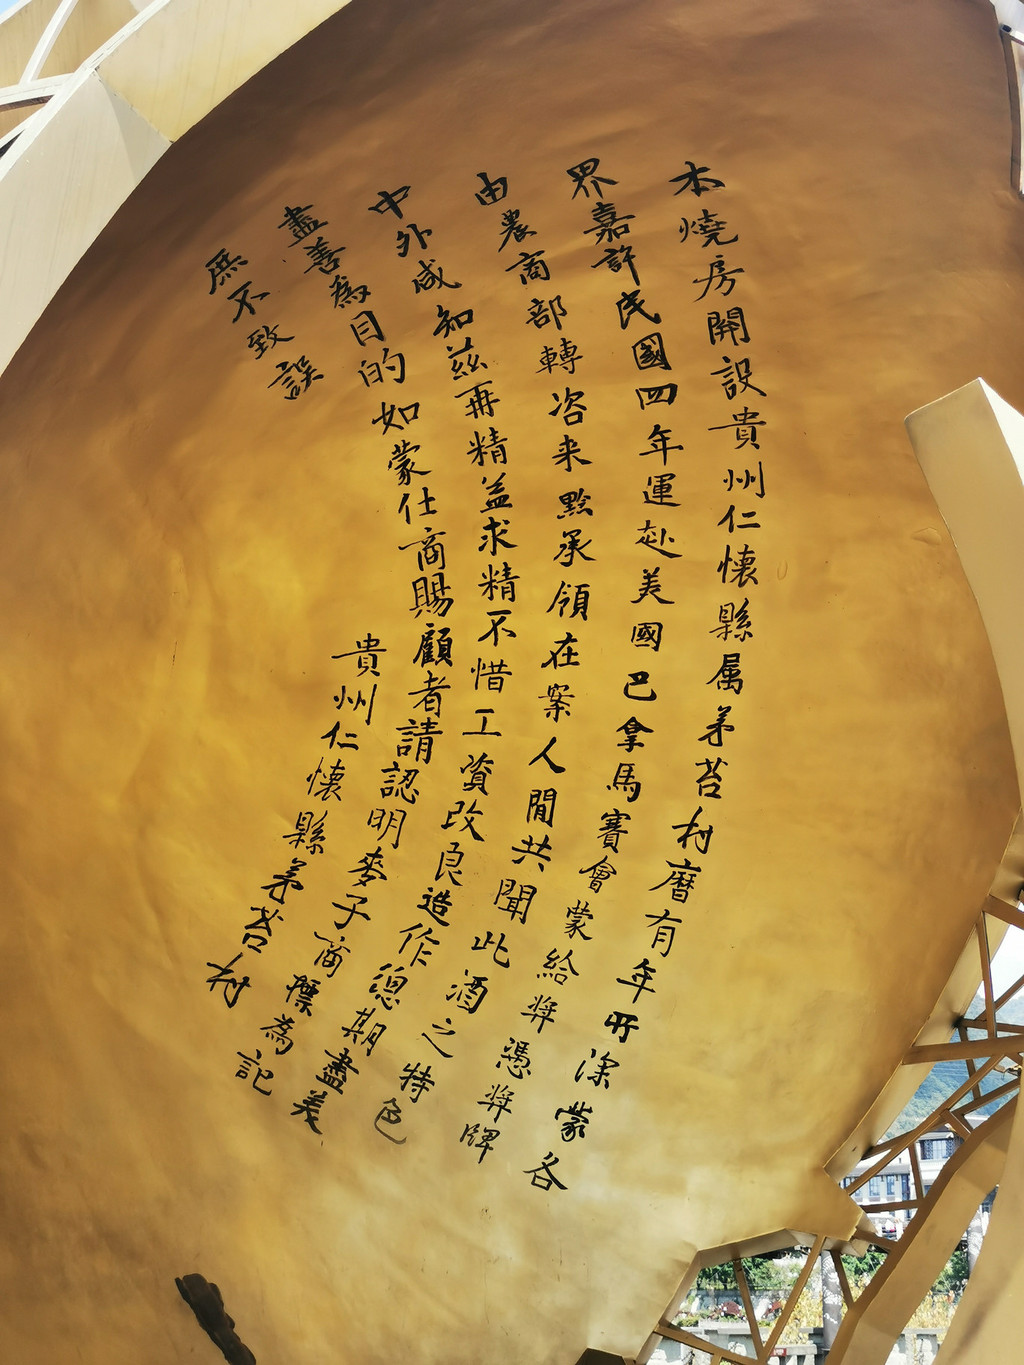 本燒房開設貴州仁懷縣属茅苔村曆有年所深蒙各
界嘉許民國四年運赴美國巴拿馬賽會蒙給獎憑獎牌
由農商部轉咨来黔承領在案人間共聞此酒之特色
中外咸知茲再精益求精不惜工資改良造作總期盡美
盡善為目的如蒙仕商賜顧者請認明麥子商標為記
庶不致誤
貴州仁懷縣茅苔村